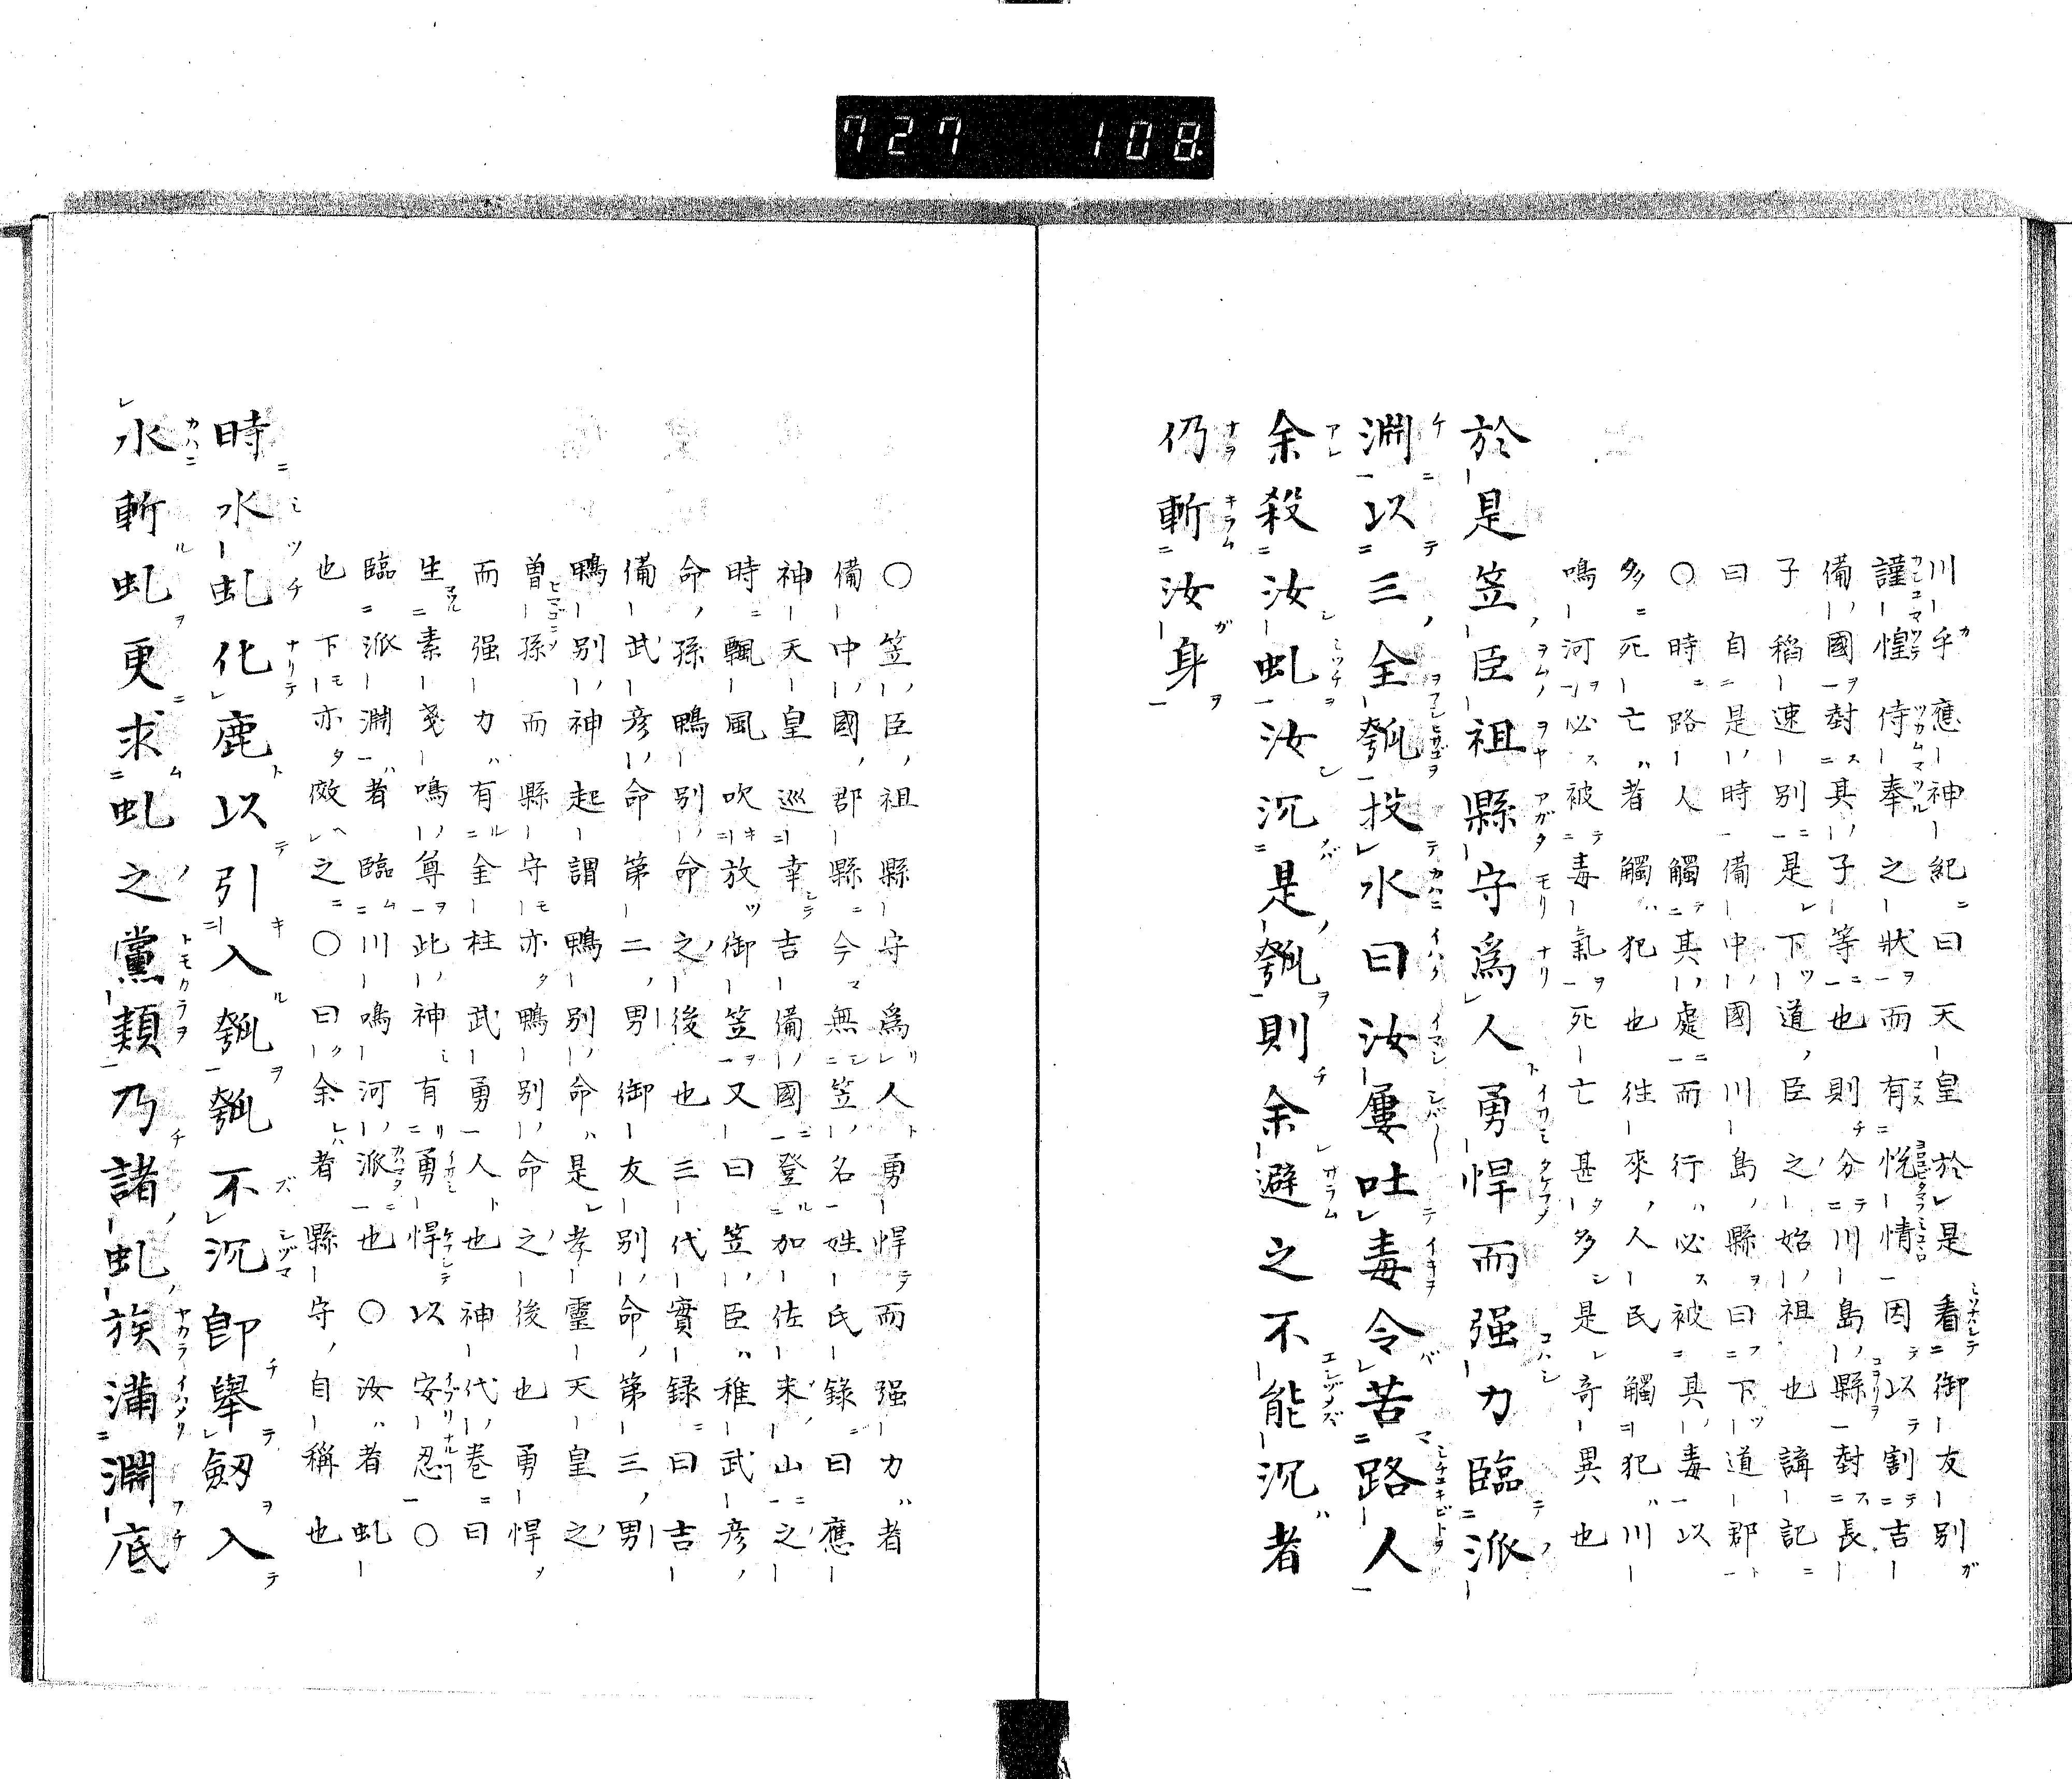 727 108
川乎應神紀曰天皇於是看御友別
謹惶侍奉之狀而有悅情因以割吉
備國封其子等也則分川島縣封長
子稻速別是下道臣之始祖也講記
曰自是時備中國川島縣曰下道郡
〇時路人觸其處而行必被其毒以
多死亡者觸犯也往來人民觸犯川
鳴河必被毒氣死亡甚多是奇異也
於是笠臣祖縣守爲人勇悍而强力臨派
淵以三全瓠投水曰汝屢吐毒令苦路人
余殺汝虬汝沉是瓠則余避之不能沉者
仍斬汝身
〇笠臣祖縣守爲人勇悍而强力者
備中國郡縣今無笠名姓氏錄曰應
神天皇巡幸吉備國登加佐米山之
時飄風吹放御笠又曰笠臣稚武彥
命孫鴨別命之後也三代實録曰吉
備武彥命第二男御友別命第三男
鴨別神起謂鴨別命是孝靈天皇之
曽孫而縣守亦鴨別命之後也勇悍
而强力有全柱武勇人也神代卷曰
生素戔鳴尊此神有勇悍以安忍〇
臨派淵者臨川鳴河派也〇汝者虬
也下亦傚之〇曰余者縣守自稱也
時水虬化鹿以引入瓠瓠不沉卽擧劔入
水斬虬更求虬之黨類乃諸虬族滿淵底